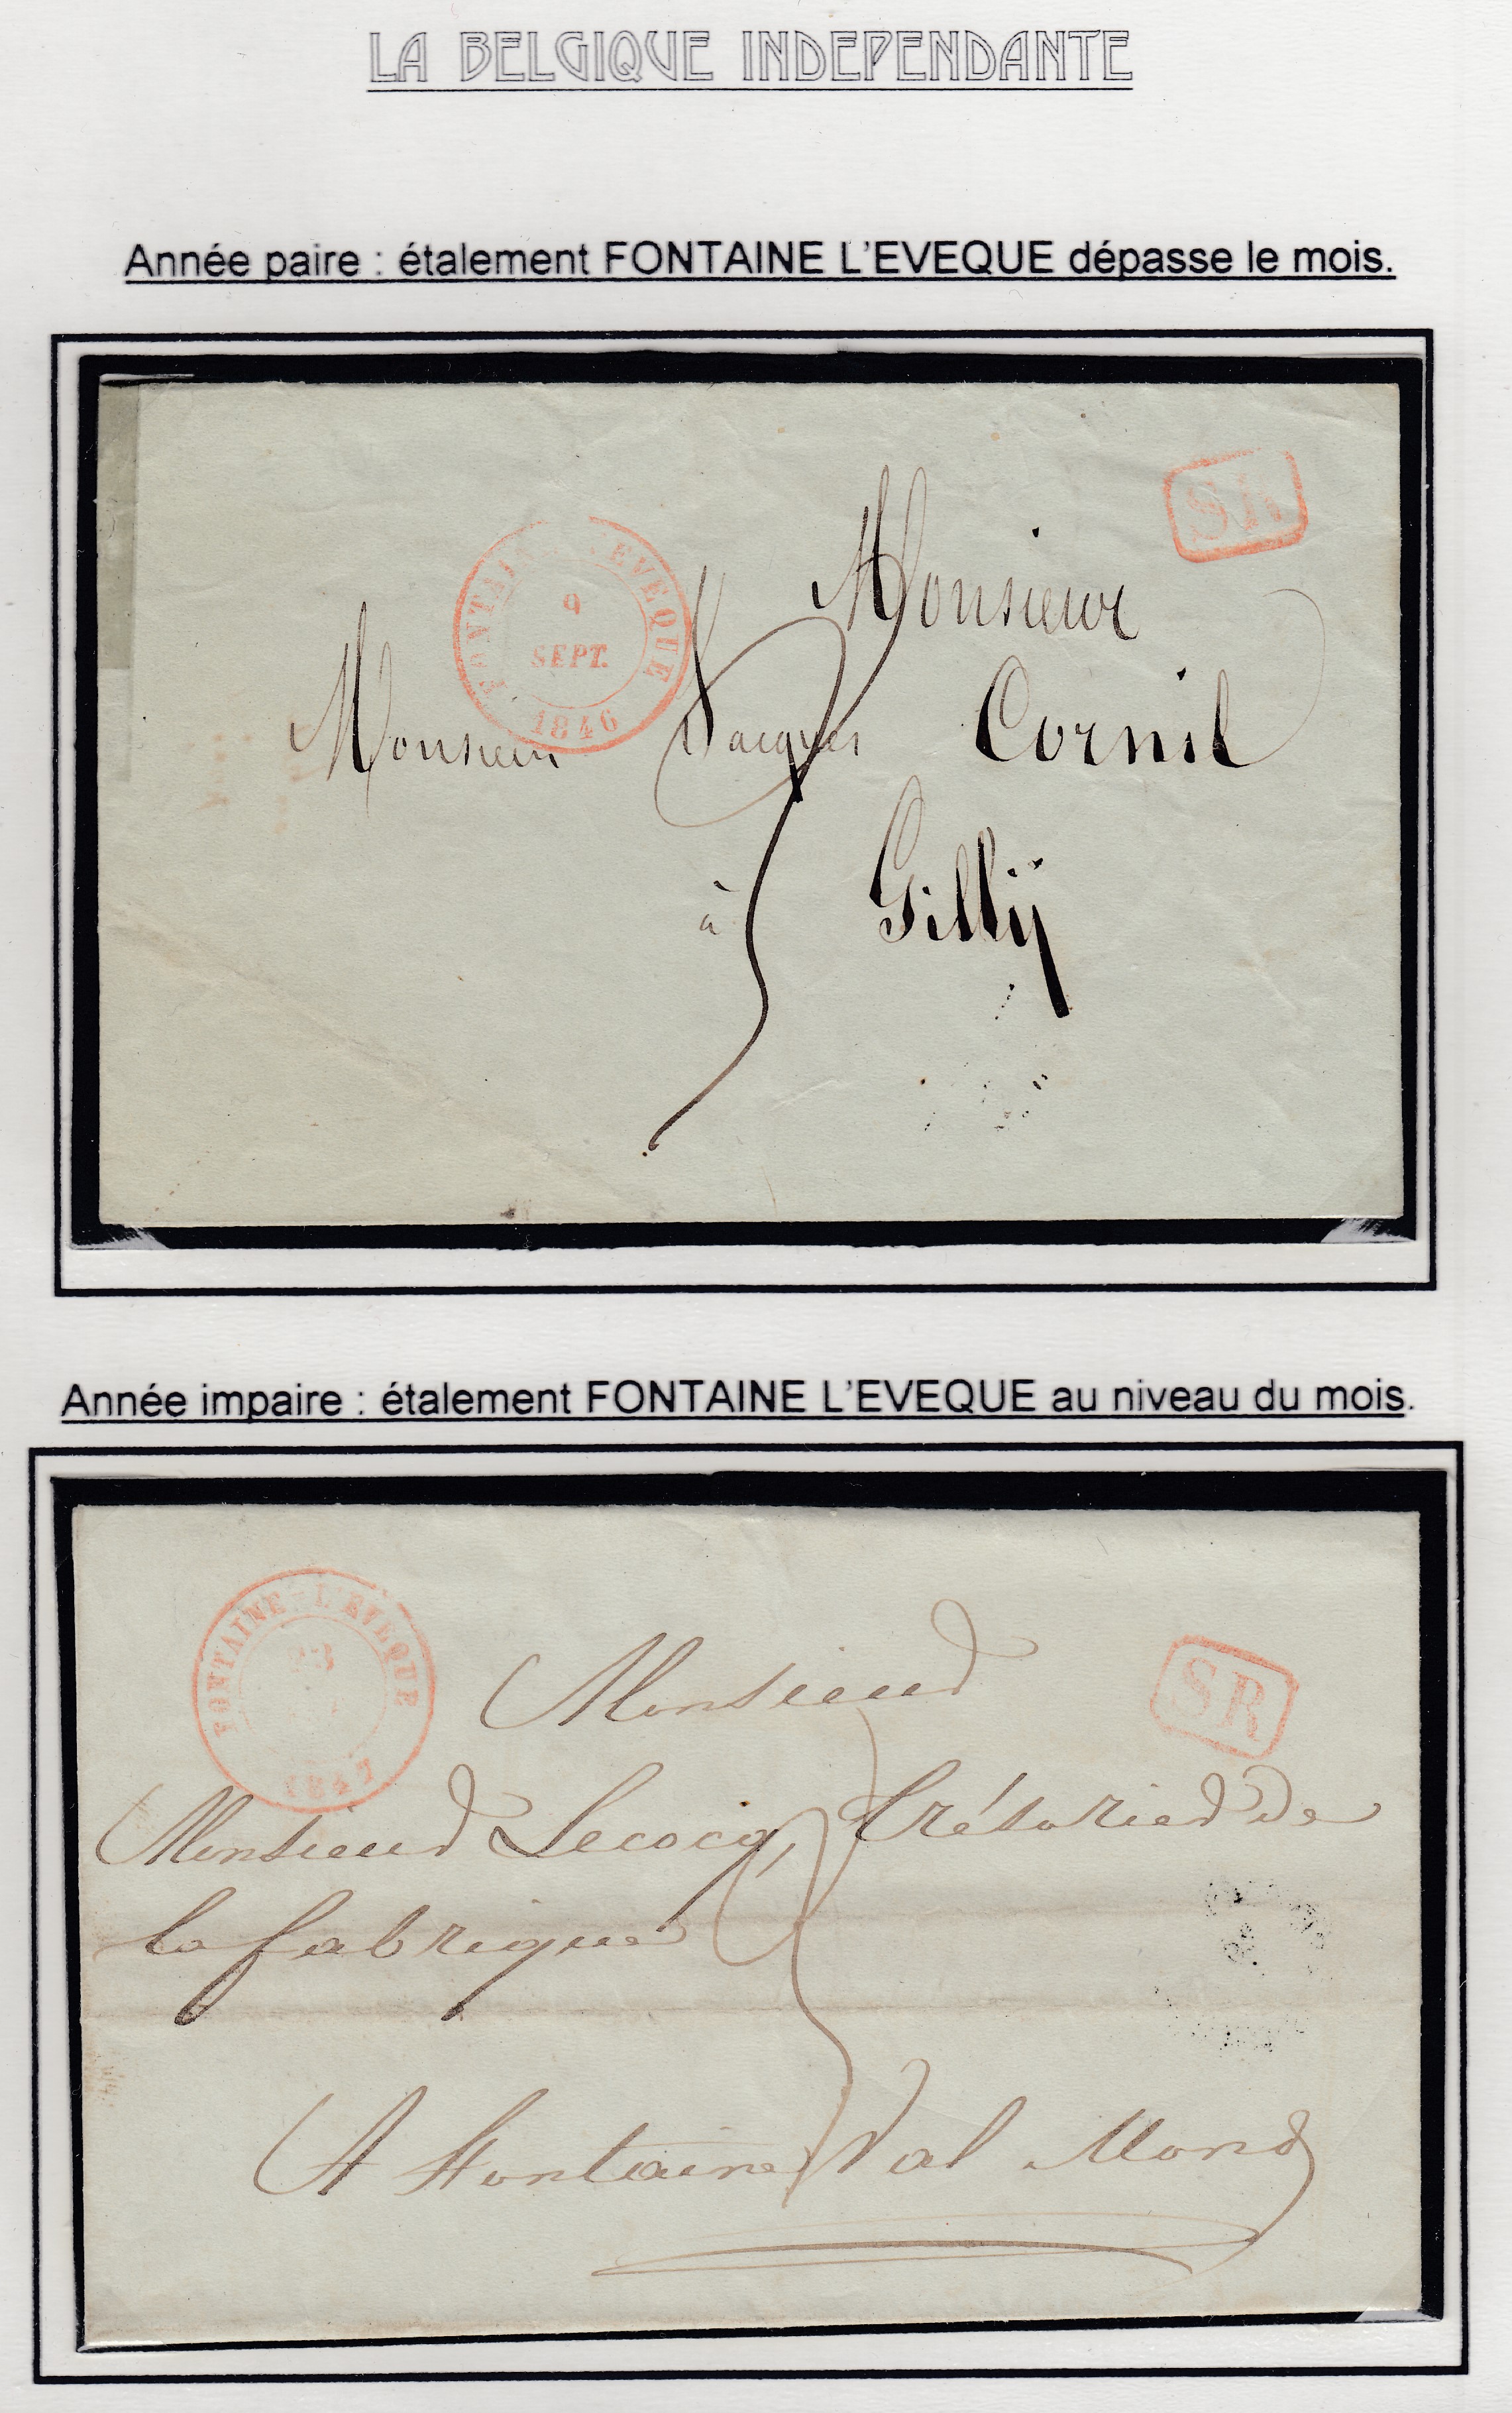 LA BELGIQUE INDEPENDANTE
Année paire : étalement FONTAINE L'EVEQUE dépasse le mois.
SR
FONTAINE L'EVEQUE
9
SEPT.
1846
Monsieur
Monsieur Jacques Cornil
à Gilly
Année impaire : étalement FONTAINE L'EVEQUE au niveau du mois.
FONTAINE-L'EVEQUE
23
1847
SR
Monsieur
Monsieur Lecocq, trésorier de
la fabrique
A Fontaine Val Mond